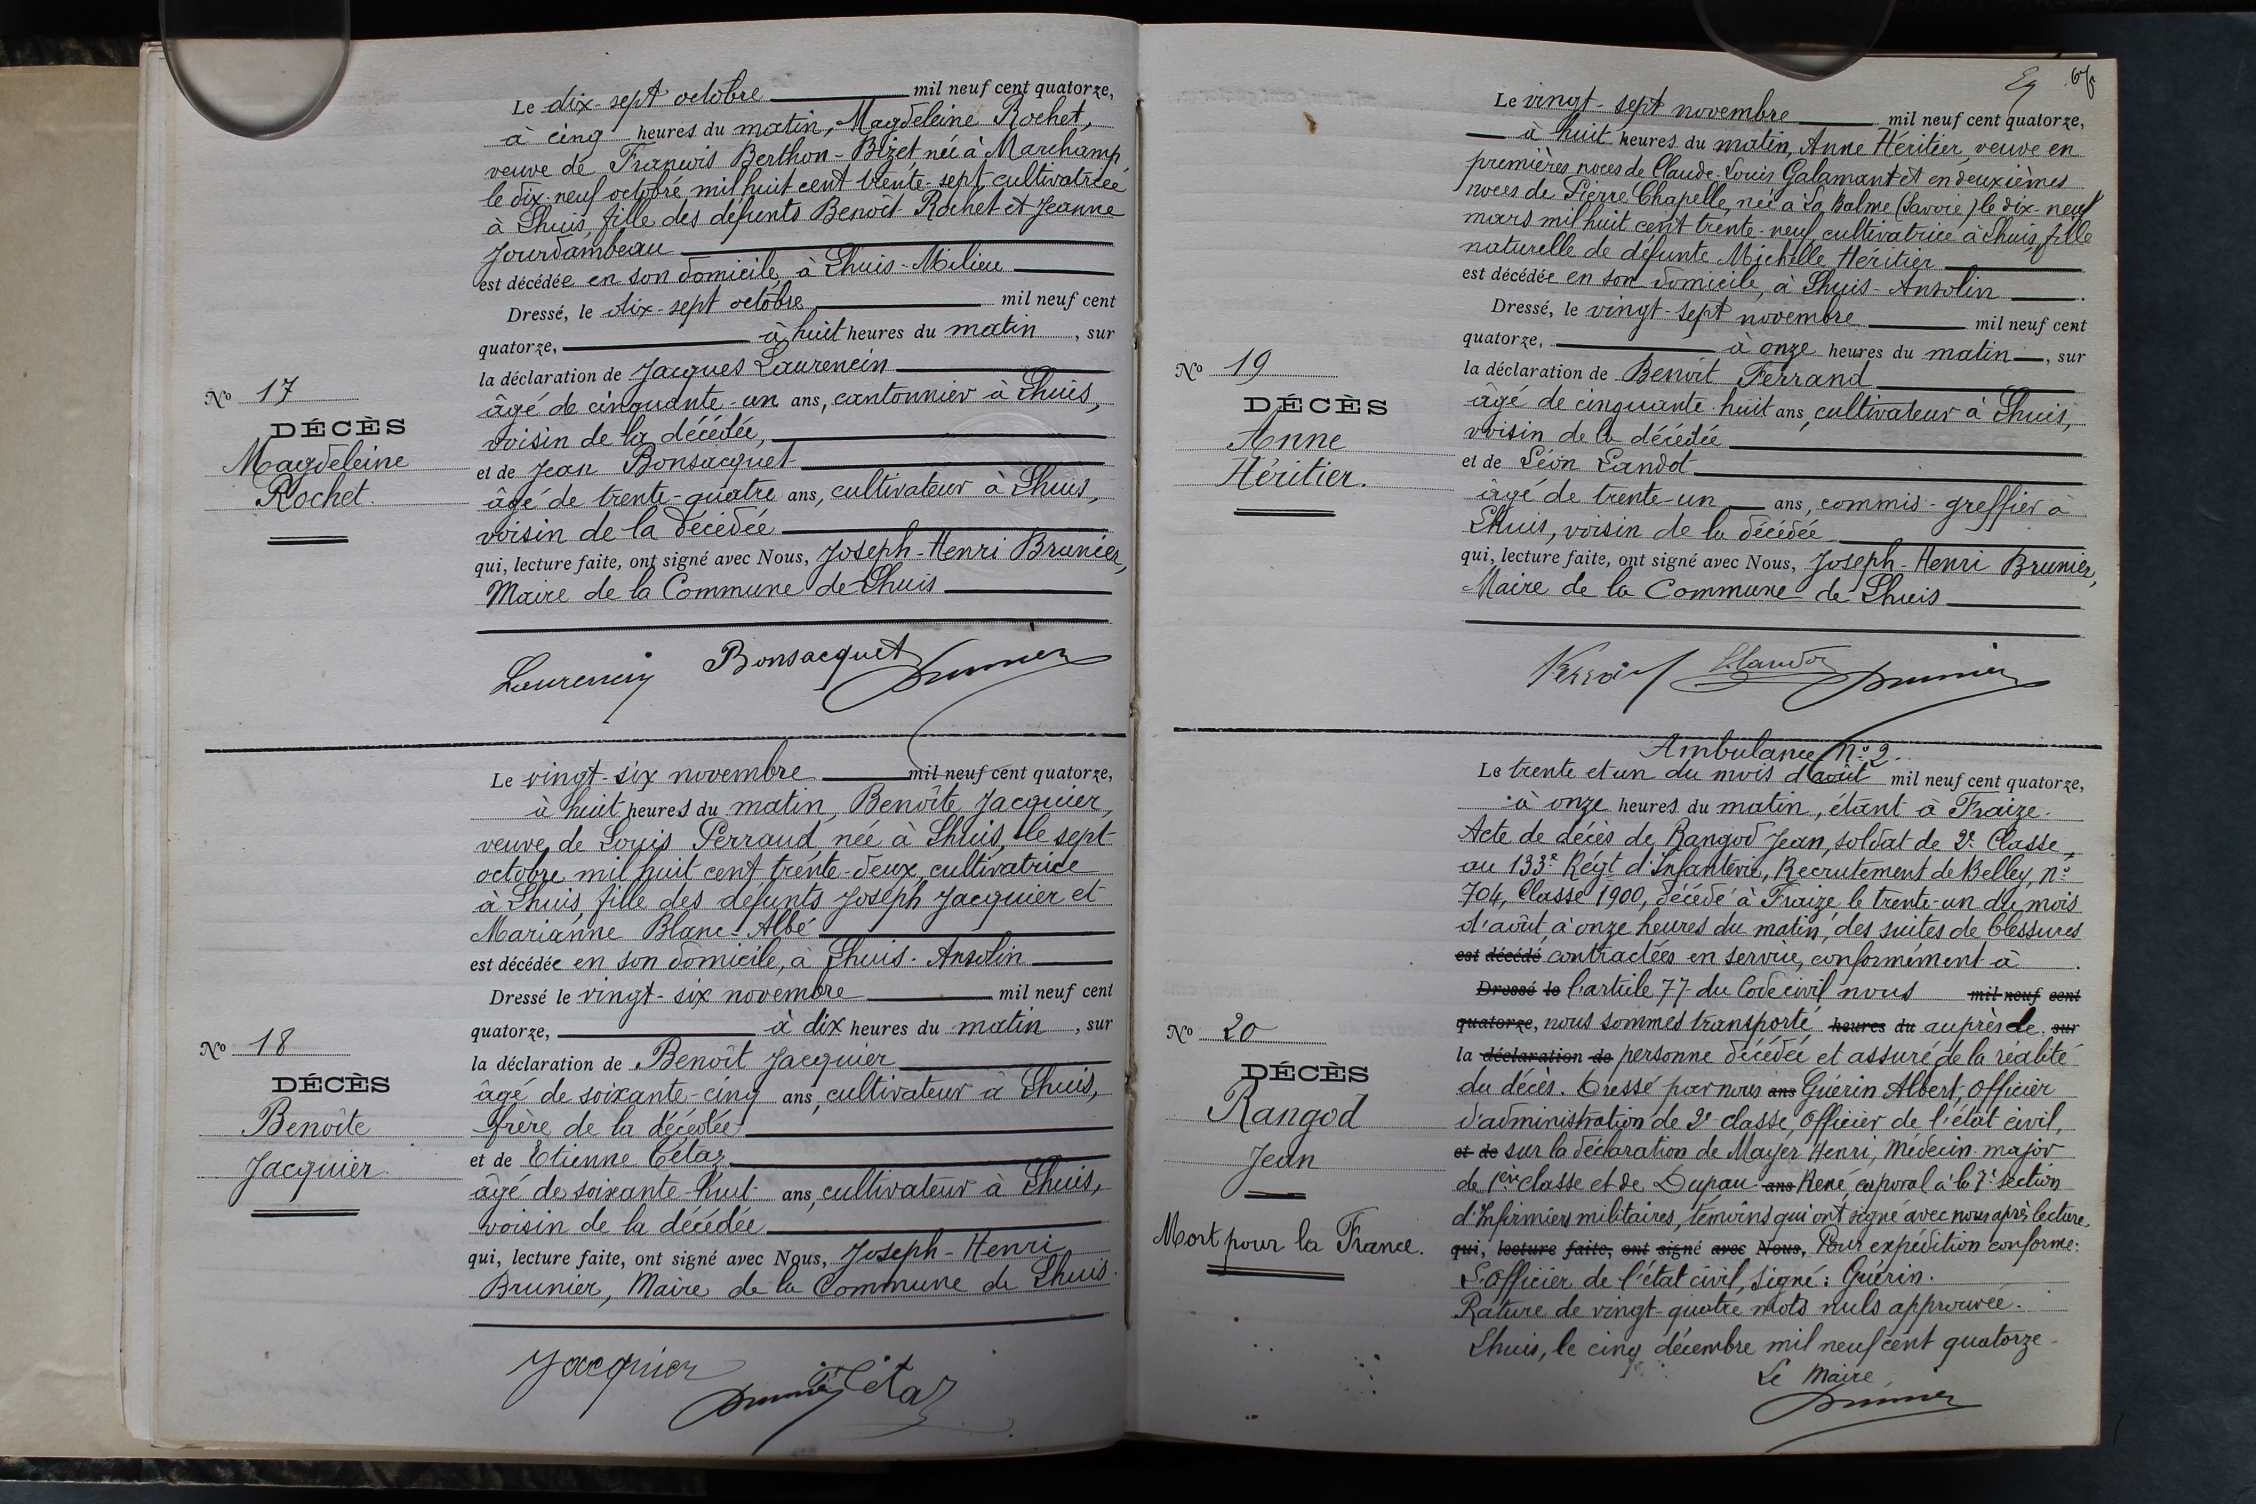 Le dix-sept octobre mil neuf cent quatorze,
à cinq heures du matin, Magdeleine Rochet,
veuve de François Berthon-Bizet née à Marchamp
le dix-neuf octobre mil huit cent trente-sept cultivatrice
à Lhuis, fille des défunts Benoît Rochet et Jeanne
Jourdambeau
est décédée en son domicile, à Lhuis-Milieu
Dressé, le dix-sept octobre mil neuf cent
quatorze, à huit heures du matin, sur
la déclaration de Jacques Laurencin
âgé de cinquante-un ans, cantonnier à Lhuis,
voisin de la décédée,
et de Jean Bonsacquet
âgé de trente-quatre ans, cultivateur à Lhuis,
voisin de la décédée
qui, lecture faite, ont signé avec Nous, Joseph-Henri Brunier,
Maire de la Commune de Lhuis
No 17
DÉCÈS
Magdeleine
Rochet.
Laurencin Bonsacquet Brunier
Le vingt-six novembre mil neuf cent quatorze,
à huit heures du matin, Benoîte Jacquier,
veuve de Louis Perraud, née à Lhuis, le sept
octobre mil huit cent trente-deux, cultivatrice
à Lhuis, fille des défunts Joseph Jacquier et
Marianne Blanc-Albé
est décédée en son domicile, à Lhuis-Ansolin
Dressé le vingt-six novembre mil neuf cent
quatorze, à dix heures du matin, sur
la déclaration de Benoît Jacquier
âgé de soixante-cinq ans, cultivateur à Lhuis,
frère de la décédée
et de Etienne Cétaz
âgé de soixante-huit ans, cultivateur à Lhuis,
voisin de la décédée
qui, lecture faite, ont signé avec Nous, Joseph-Henri
Brunier, Maire de la Commune de Lhuis.
No 18
DÉCÈS
Benoîte
Jacquier.
Jacquier Brunier Cétaz
Le vingt-sept novembre mil neuf cent quatorze,
à huit heures du matin, Anne Héritier, veuve en
premières noces de Claude-Louis Galamant et en deuxièmes
noces de Pierre Chapelle, née à La Balme (Savoie) le dix-neuf
mars mil huit cent trente-neuf, cultivatrice à Lhuis, fille
naturelle de défunte Michelle Héritier
est décédée en son domicile, à Lhuis-Ansolin
Dressé, le vingt-sept novembre mil neuf cent
quatorze, à onze heures du matin, sur
la déclaration de Benoît Ferrand
âgé de cinquante-huit ans, cultivateur à Lhuis,
voisin de la décédée
et de Léon Landot
âgé de trente-un ans, commis-greffier à
Lhuis, voisin de la décédée
qui, lecture faite, ont signé avec Nous, Joseph-Henri Brunier,
Maire de la Commune de Lhuis
No 19
DÉCÈS
Anne
Héritier.
Brunier
Ambulance No 2.
Le trente et un du mois d'août mil neuf cent quatorze,
à onze heures du matin, étant à Fraize.
Acte de décès de Rangod Jean, soldat de 2e Classe,
au 133e Régt d'Infanterie, Recrutement de Belley, no
704, Classe 1900, décédé à Fraize le trente-un du mois
d'août à onze heures du matin, des suites de blessures
est décédé contractées en service, conformément à
Dressé le l'article 77 du Code civil nous mil neuf cent
quatorze, nous sommes transporté heures du auprès de sur
la déclaration de personne décédée et assuré de la réalité
du décès. Dressé par nous ans Guérin Albert, officier
d'administration de 2e classe, officier de l'état civil,
et de sur la déclaration de Mayer Henri, Médecin-major
de 1ère classe et de Dupau ans René, caporal à la 7e section
d'Infirmiers militaires, témoins qui ont signé avec nous après lecture.
qui, lecture faite, ont signé avec Nous, Pour expédition conforme:
L'officier de l'état civil, signé: Guérin.
Rature de vingt-quatre mots nuls approuvée.
Lhuis, le cinq décembre mil neuf cent quatorze
Le Maire,
Brunier
No 20
DÉCÈS
Rangod
Jean
Mort pour la France.